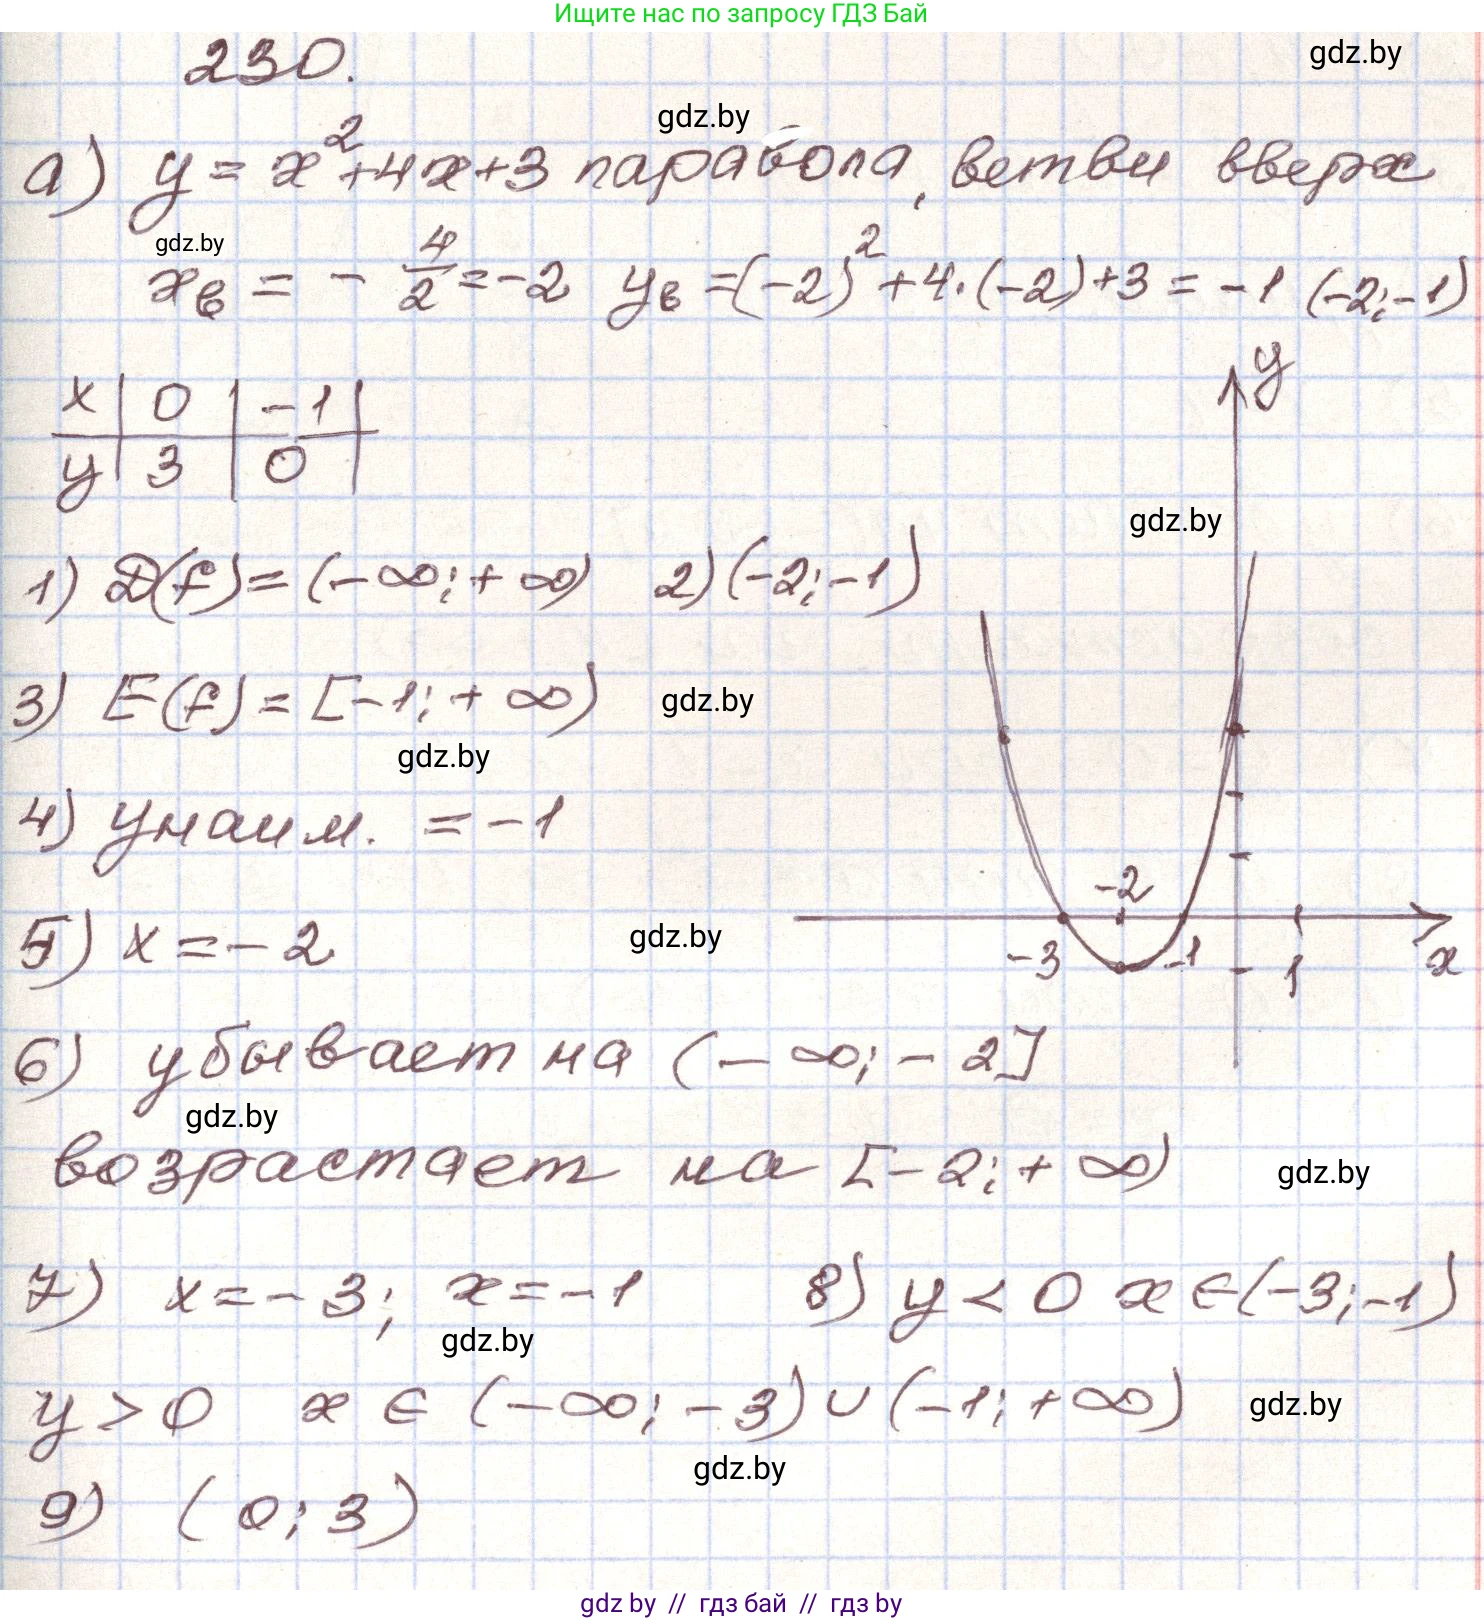 Ищите нас по запросу ГДЗ Бай
230.
gdz.by
gdz.by
а) y = x²+4x+3 парабола, ветви вверх
gdz.by
xв = - 4/2 = -2 yв = (-2)² + 4·(-2) + 3 = -1 (-2;-1)
y
x | 0 | -1 |
y | 3 | 0 |
gdz.by
1) D(f) = (-∞; +∞) 2) (-2; -1)
3) E(f) = [-1; +∞)
gdz.by
gdz.by
4) yнаим. = -1
-2
gdz.by
5) x = -2
-3 -1 1 x
6) убывает на (-∞; -2]
gdz.by
возрастает на [-2; +∞)
gdz.by
7) x = -3; x = -1 8) y < 0 x ∈ (-3; -1)
gdz.by
y > 0 x ∈ (-∞; -3) ∪ (-1; +∞)
gdz.by
gdz.by
9) (0; 3)
gdz by // гдз бай // гдз by